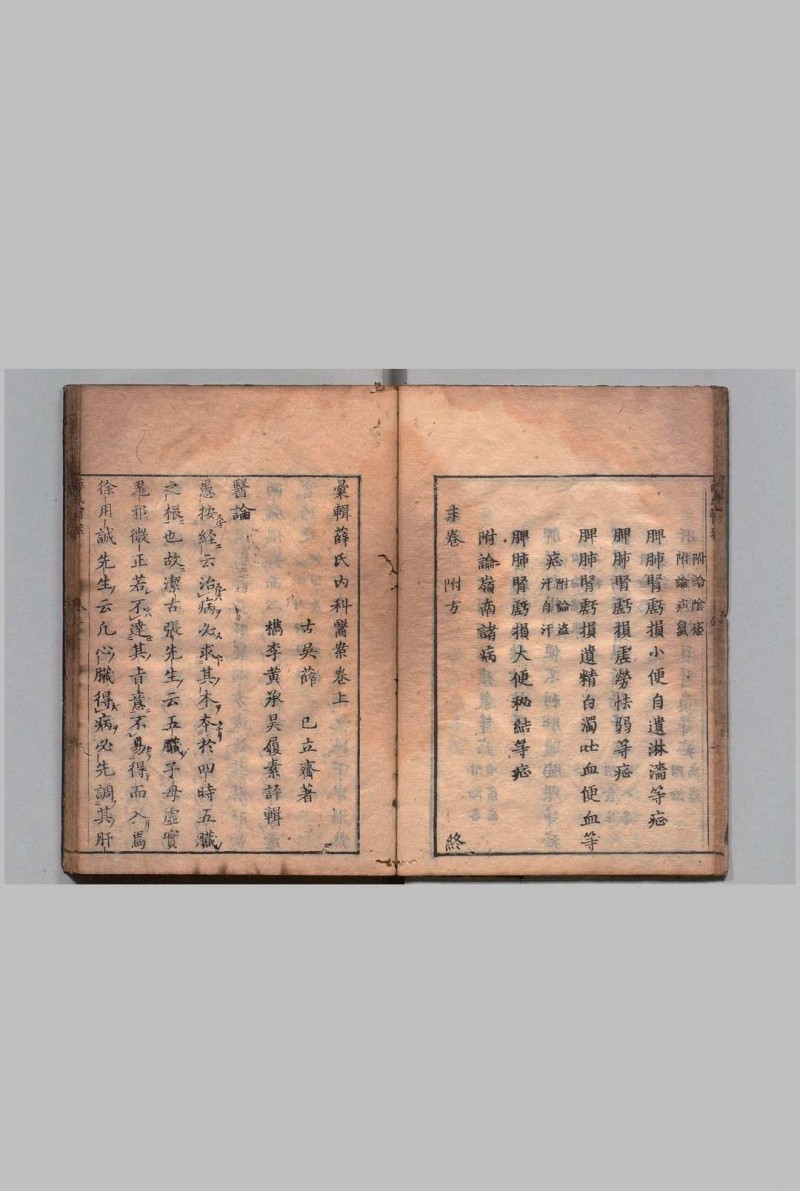 附論陰痿
附論疝氣
脾肺腎虧損小便自遺淋濇等症
脾肺腎虧損虛勞怯弱等症
脾肺腎虧損遺精白濁吐血便血等
症 附論盜
汗自汗
脾肺腎虧損大便秘結等症
附論嶺南諸病
末卷 附方
終
彙輯薛氏內科醫案卷上
古吳薛 己立齋著
檇李黃承昊履素評輯
醫論
愚按經云治病必求其本本於四時五臟
之根也故潔古張先生云五臟子母虛實
鬼邪微正若不達其旨意不易得而入焉
徐用誠先生云凡心臟得病必先調其肝